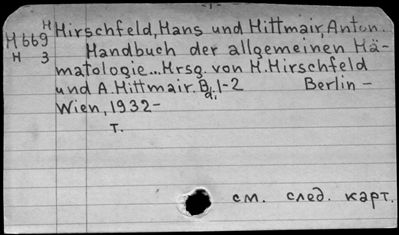 H
M669
H 3
Hirschfeld, Hans und Hittmair, Anton.
Handbuch der allgemeinen Hä-
matologie... Hrsg. von H. Hirschfeld
und A. Hittmair. Bd. 1-2 Berlin -
Wien, 1932-
т.
см. след. карт.